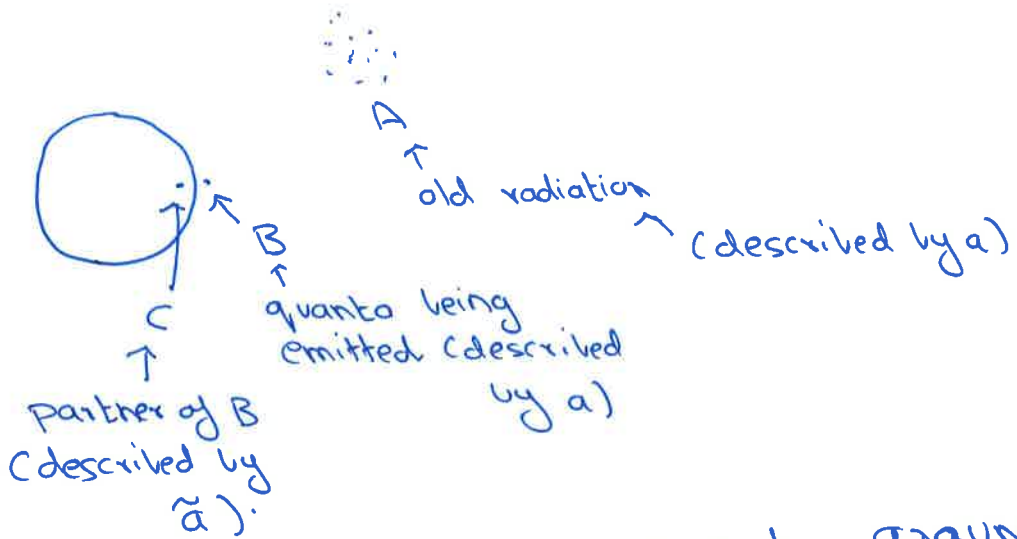 A
old radiation
(described by a)
B
quanta being
emitted (described
by a)
C
partner of B
(described by
ã).